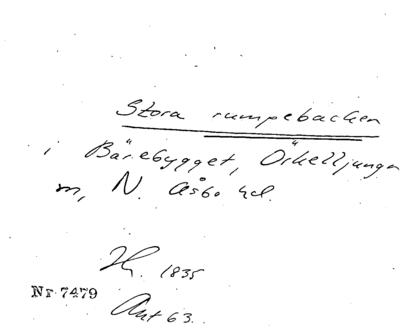 Stora rumpebacken
i Bärebygget, Örkelljunga
m, N. Åsbo hd.
H. 1835
Nr 7479
Ant 63.